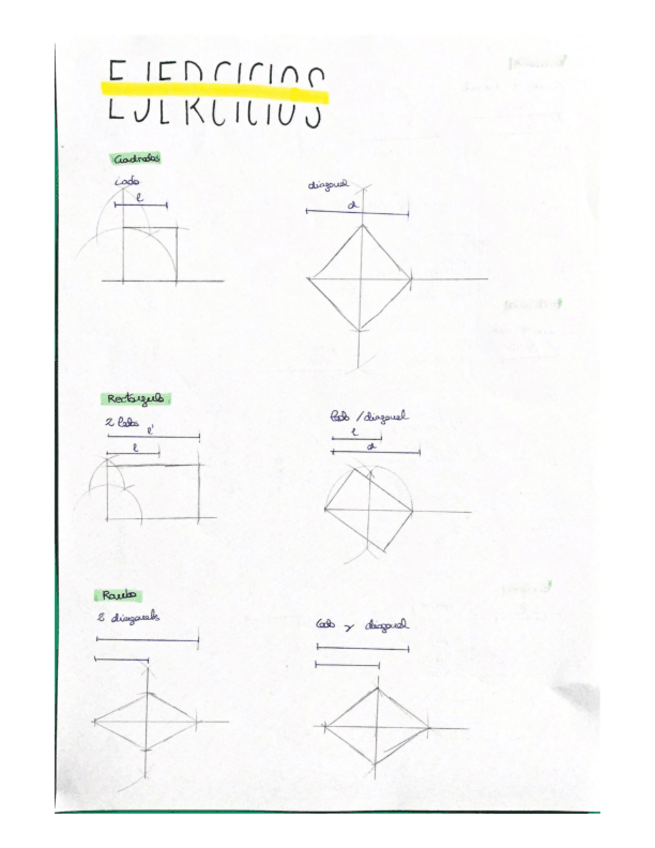 EJERCICIOS
Cuadrados
Lado
l
diagonal
d
Rectángulo
2 lados
l'
l
lado / diagonal
l
d
Rombo
2 diagonals
lado y diagonal